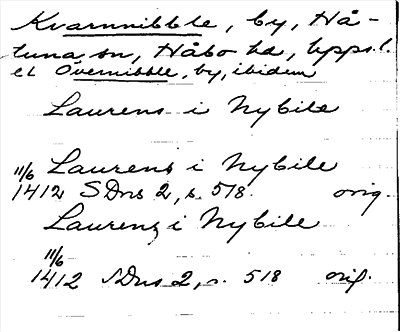 Kvarnnibble, by, Hå-
tuna sn, Håbo hd, Upps.l.
et Övernibble, by, ibidem
Laurens i Nybile
11/6 Laurens i Nybile
1412 SDns 2, s. 518. orig.
Laurens i Nybile
11/6
1412 SDns 2, s. 518 orig.